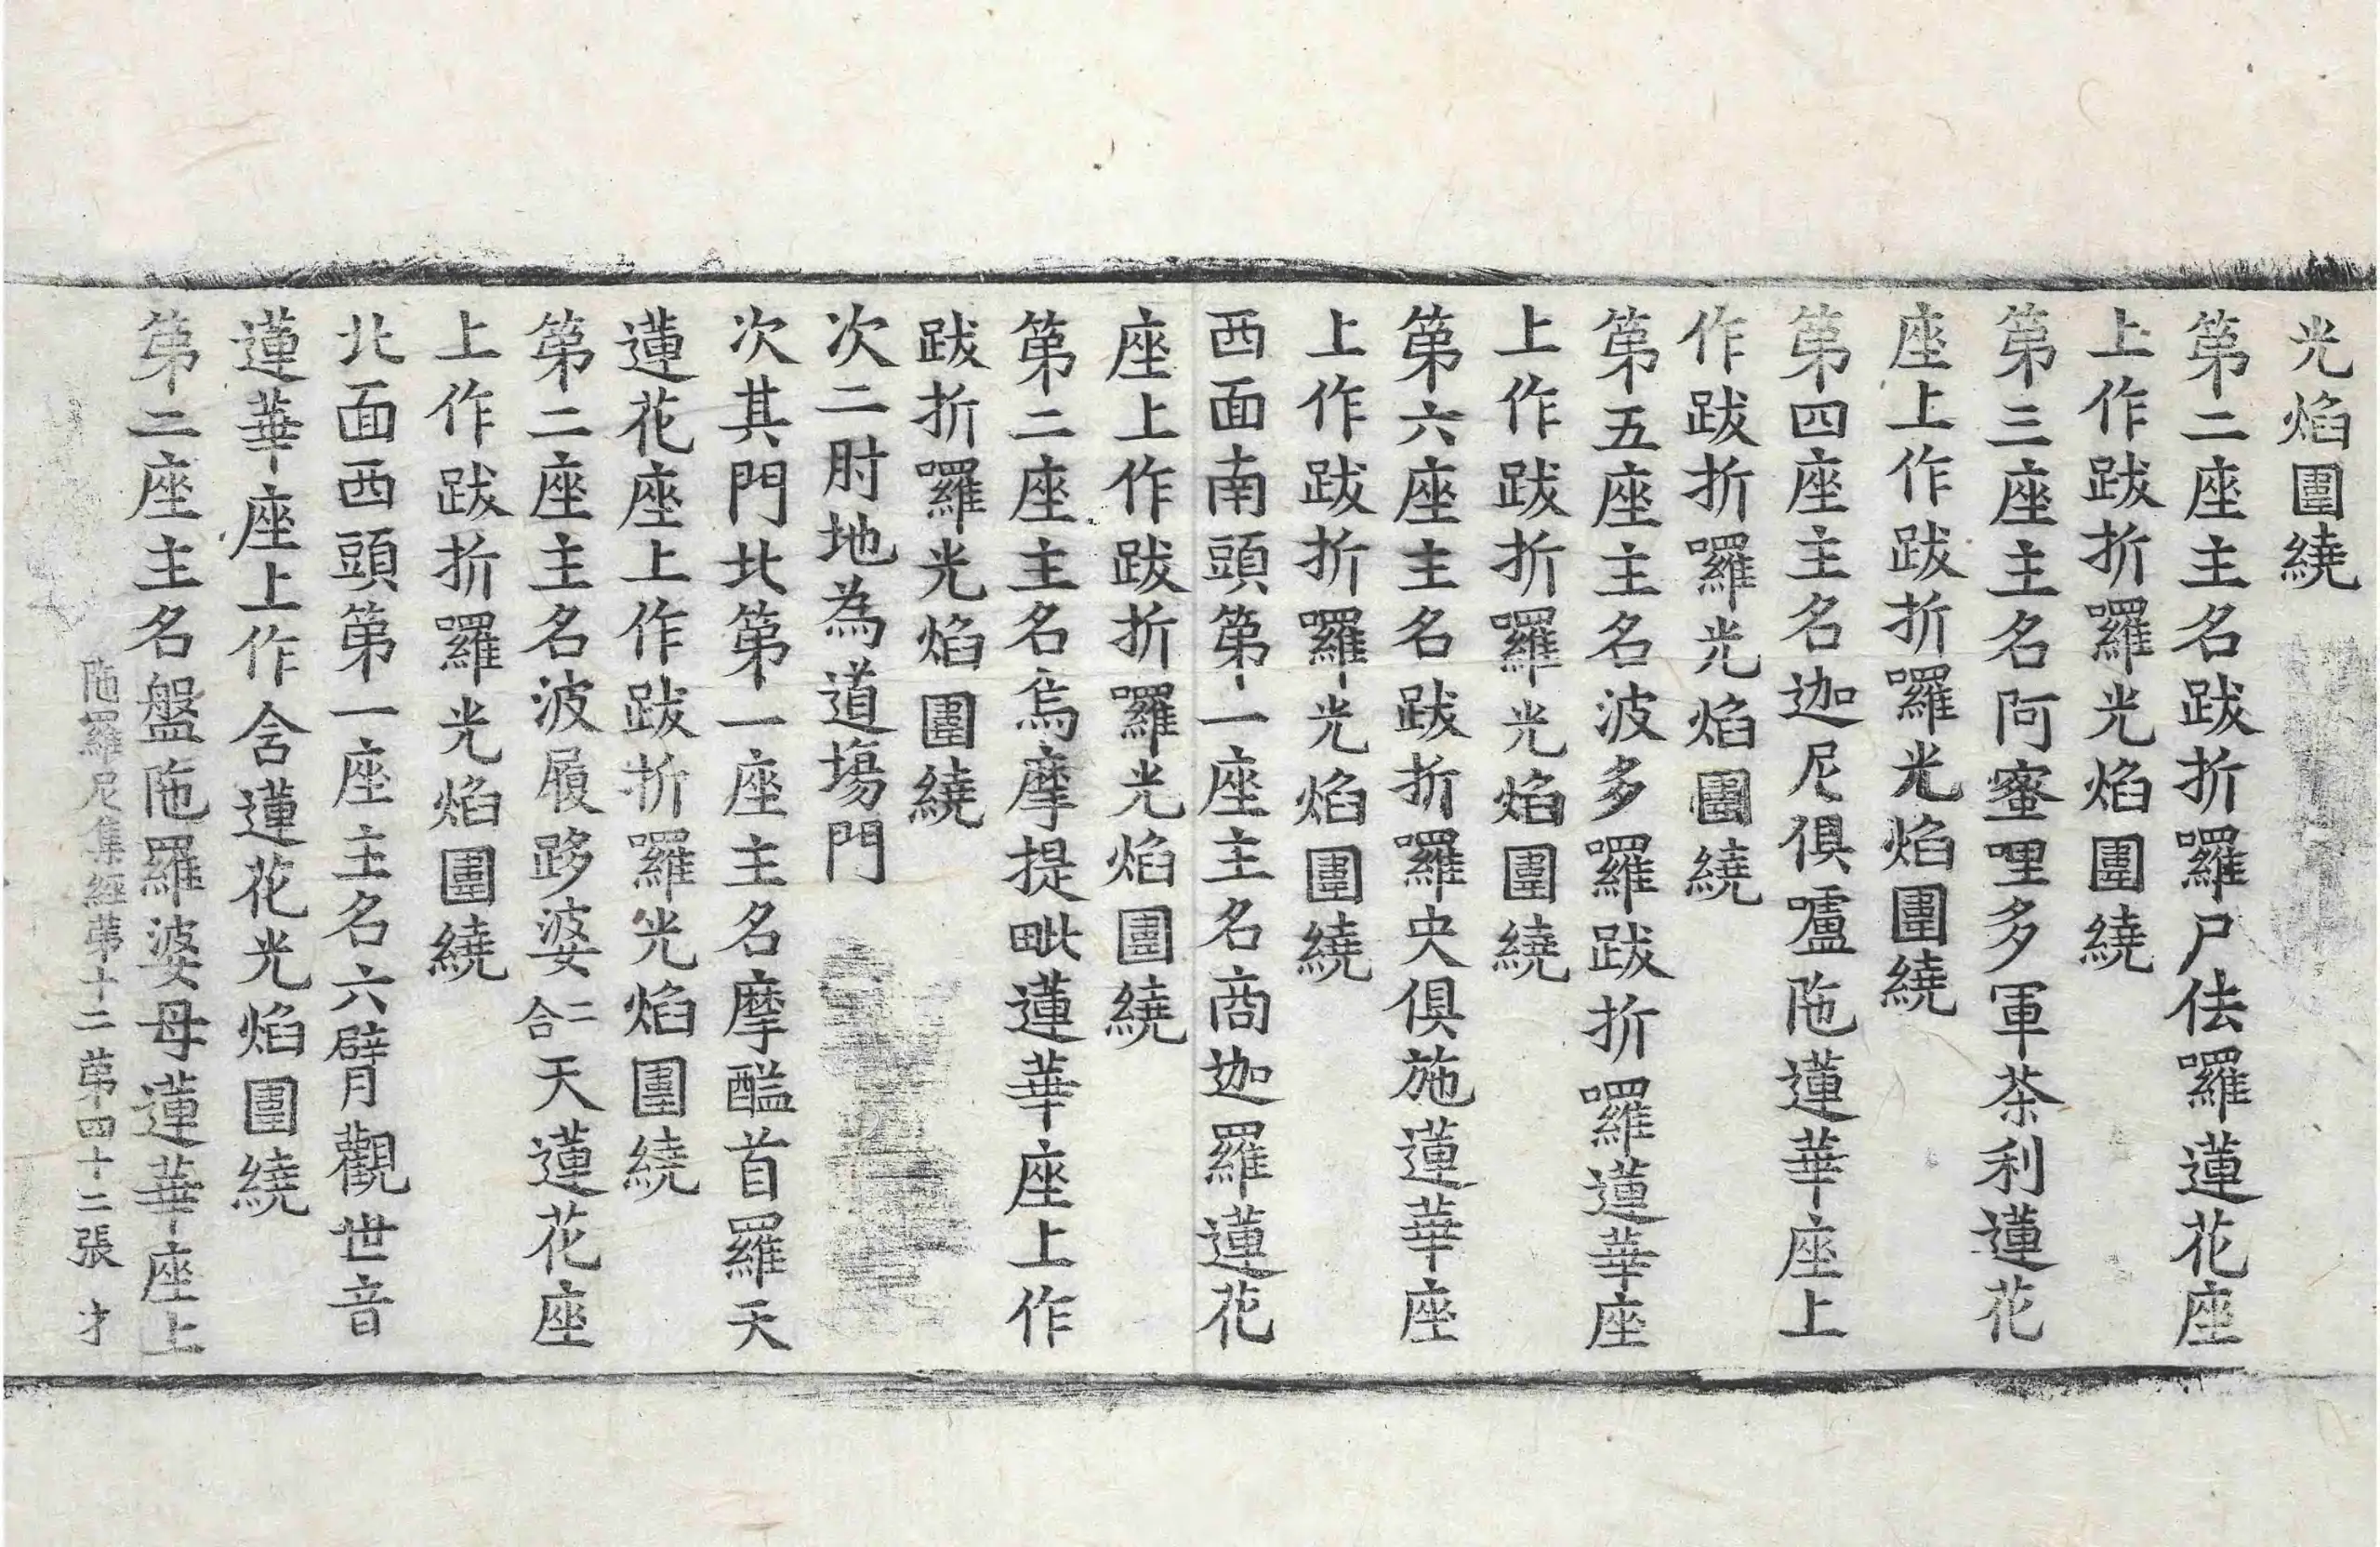 光焰圍繞
第二座主名跋折囉尸佉囉蓮花座
上作跋折囉光焰圍繞
第三座主名阿蜜哩多軍荼利蓮花
座上作跋折囉光焰圍繞
第四座主名迦尼俱嚧陁蓮華座上
作跋折囉光焰圍繞
第五座主名波多羅跋折囉蓮華座
上作跋折囉光焰圍繞
第六座主名跋折囉央俱施蓮華座
上作跋折囉光焰圍繞
西面南頭第一座主名商迦羅蓮花
座上作跋折囉光焰圍繞
第二座主名烏摩提毗蓮華座上作
跋折囉光焰圍繞
次二肘地為道場門
次其門北第一座主名摩醯首羅天
蓮花座上作跋折囉光焰圍繞
第二座主名波履跢婆二合天蓮花座
上作跋折囉光焰圍繞
北面西頭第一座主名六臂觀世音
蓮華座上作含蓮花光焰圍繞
第二座主名盤陁羅婆母蓮華座上
陁羅尼集經第十二 第四十二張 才